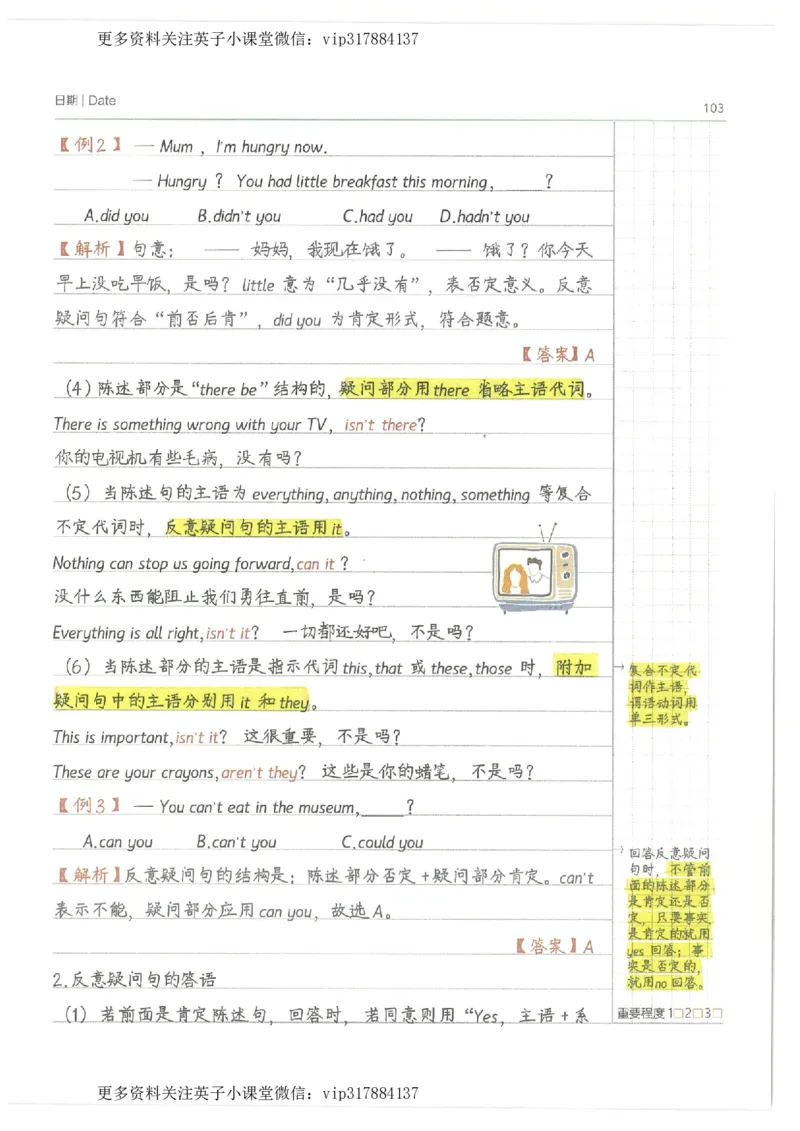 更多资料关注英子小课堂微信：vip317884137
日期 | Date
103
【例2】 — Mum , I'm hungry now.
— Hungry ? You had little breakfast this morning,_____?
A.did you B.didn't you C.had you D.hadn't you
【解析】句意： —— 妈妈，我现在饿了。 —— 饿了？你今天
早上没吃早饭，是吗？ little 意为“几乎没有”，表否定意义。反意
疑问句符合“前否后肯”，did you 为肯定形式，符合题意。
【答案】A
（4）陈述部分是“there be”结构的，疑问部分用there 省略主语代词。
There is something wrong with your TV，isn't there?
你的电视机有些毛病，没有吗？
（5）当陈述句的主语为 everything, anything, nothing, something 等复合
不定代词时，反意疑问句的主语用it。
Nothing can stop us going forward,can it ?
没什么东西能阻止我们勇往直前，是吗？
Everything is all right,isn't it? 一切都还好吧，不是吗？
（6）当陈述部分的主语是指示代词 this,that 或 these,those 时，附加
疑问句中的主语分别用it 和they。
This is important,isn't it? 这很重要，不是吗？
These are your crayons,aren't they? 这些是你的蜡笔，不是吗？
【例3】 — You can't eat in the museum,_____?
A.can you B.can't you C.could you
【解析】反意疑问句的结构是：陈述部分否定 +疑问部分肯定。can't
表示不能，疑问部分应用 can you，故选 A。
【答案】A
2.反意疑问句的答语
（1）若前面是肯定陈述句，回答时，若同意则用“Yes，主语 + 系
复合不定代
词作主语，
谓语动词用
单三形式。
回答反意疑问
句时，不管前
面的陈述部分
是肯定还是否
定，只要事实
是肯定的就用
yes 回答；事
实是否定的，
就用no 回答。
重要程度 1□2□3□
更多资料关注英子小课堂微信：vip317884137